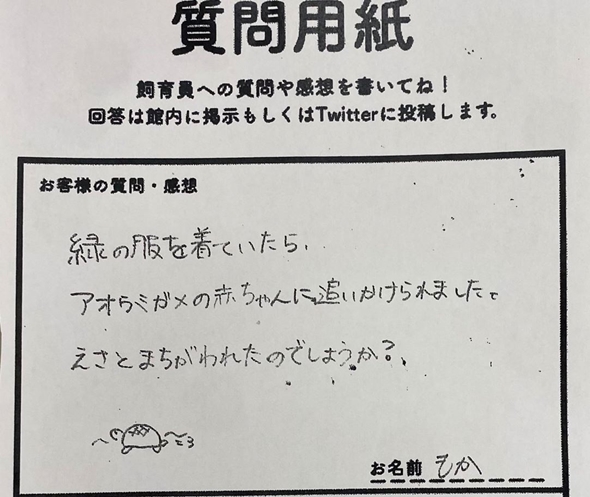 質問用紙
飼育員への質問や感想を書いてね！
回答は館内に掲示もしくはTwitterに投稿します。
お客様の質問・感想
緑の服を着ていたら、
アオウミガメの赤ちゃんに追いかけられました。
えさとまちがわれたのでしょうか？
お名前 もか